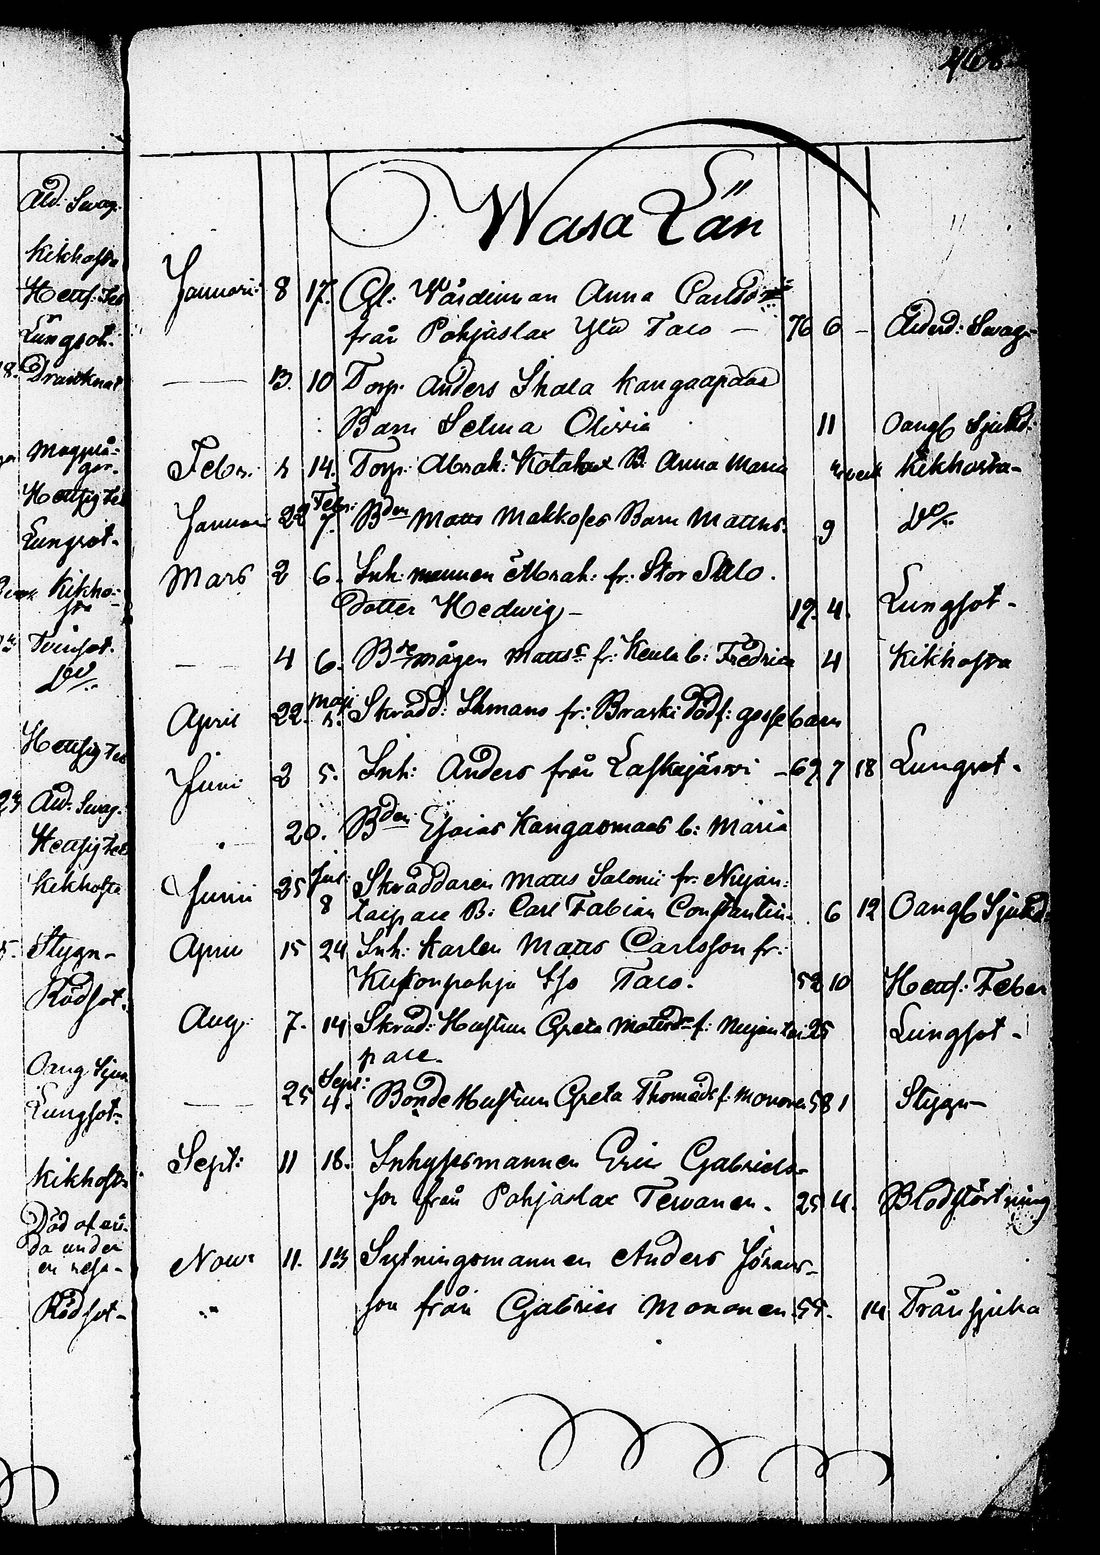 468
Wasa Län
Åld: Swag:
Kikhosta
Hetts: Feb
Lungsot.
18. Drunknat
Magplå-
gor.
Hettsig Feb
Lungsot.
Kikho-
sta
Tvinsot.
Do
Hettsig Feb
23 Åld: Swag:
Hettsig Feb
Kikhosta
Stygn-
Rödsot.
Oang Sjuk
Lungsot:
Kikhosta
Död af
da under
en resa-
Rödsot-
Januari 8 17. Gl: Wärdinnan Anna Carlsdotr
från Pohjaslax Yli Taco — 76 6 - Ålderd: Swag-
— 13. 10 Torp: Anders Skata Kangaapään
Barn Selma Olivia 11 Oangf Sjukd:
Febr: 14. Torp: Abrah: B: Anna Maria Kikhosta-
Januari 22 Febr: 7. Bden Matts Makkoses Barn Matths. 9 Do
Mars 2 6. Inh:mannen Abrah: fr: Stor
Dotter Hedwig- 19. 4. Lungsot-
— 4 6. Matts: fr: b: Fredrica 4 Kikhosta
April 22. Maji Skrädd: fr: Braski Dödf: gosse barn
Juni 2 5. Inh: Anders från Laskajärwi - 69 7 18 Lungsot.
20. Bden Esaias Kangasmaas b: Maria
Junii 25 Jul: 8 Skräddaren Matts Salonii fr: Nujan:
taipale B: Carl Fabian Constantin. 6 12 Oangf Sjukd:
April 15 24 Inh: Karlen Matts Carlsson fr:
Taco. 58 10 Hetts: Feber
Aug: 7. 14 Skräd: Hustrun Greta Matsdr f: Nujantai 25 Lungsot-
pale.
— 25 Sept: 4. Bonde Hustrun Greta Thomasdr f: Monone 58 1 Stygn-
Sept: 11 18. Inhysesmannen Eric Gabriels-
son från Pohjaslax Terwanen. 25 4. Blodstörtning
Now: 11. 13 Sytningsmannen Anders Jörans-
son från Gabriel Mononen 55. 14 Trånsjuka